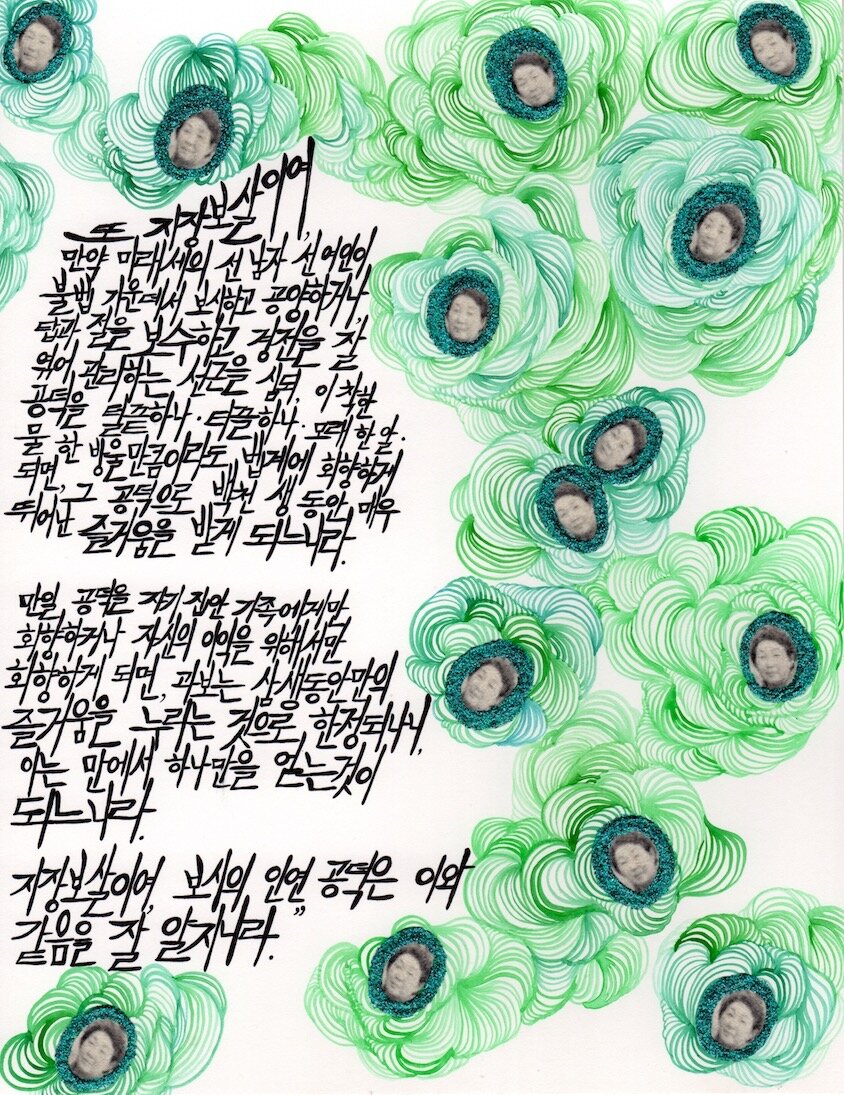 또 지장보살이여,
만약 미래세의 선남자 선여인이
불법 가운데서 보시하고 공양하거나,
탑과 절을 보수하고 경전을 잘
엮어 관리하는 선근을 심되, 이 착한
공덕을 털끝하나·티끌하나·모래 한 알·
물 한 방울만큼이라도 법계에 회향하게
되면, 그 공덕으로 백천 생 동안 매우
뛰어난 즐거움을 받게 되느니라.
만일 공덕을 자기 집안 가족에게만
회향하거나 자신의 이익을 위해서만
회향하게 되면, 과보는 삼생동안만의
즐거움을 누리는 것으로 한정되나니,
이는 만에서 하나만을 얻는것이
되느니라.
지장보살이여, 보시의 인연 공덕은 이와
같음을 잘 알지니라."